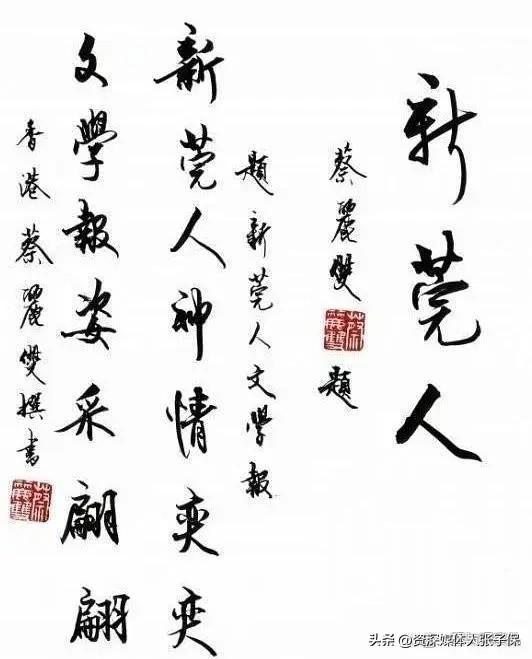 新莞人
蔡麗雙題
題新莞人文學報
新莞人神情奕奕
文學報姿采翩翩
香港蔡麗雙撰書
蔡麗雙
蔡麗雙
头条 @资深媒体人张字保